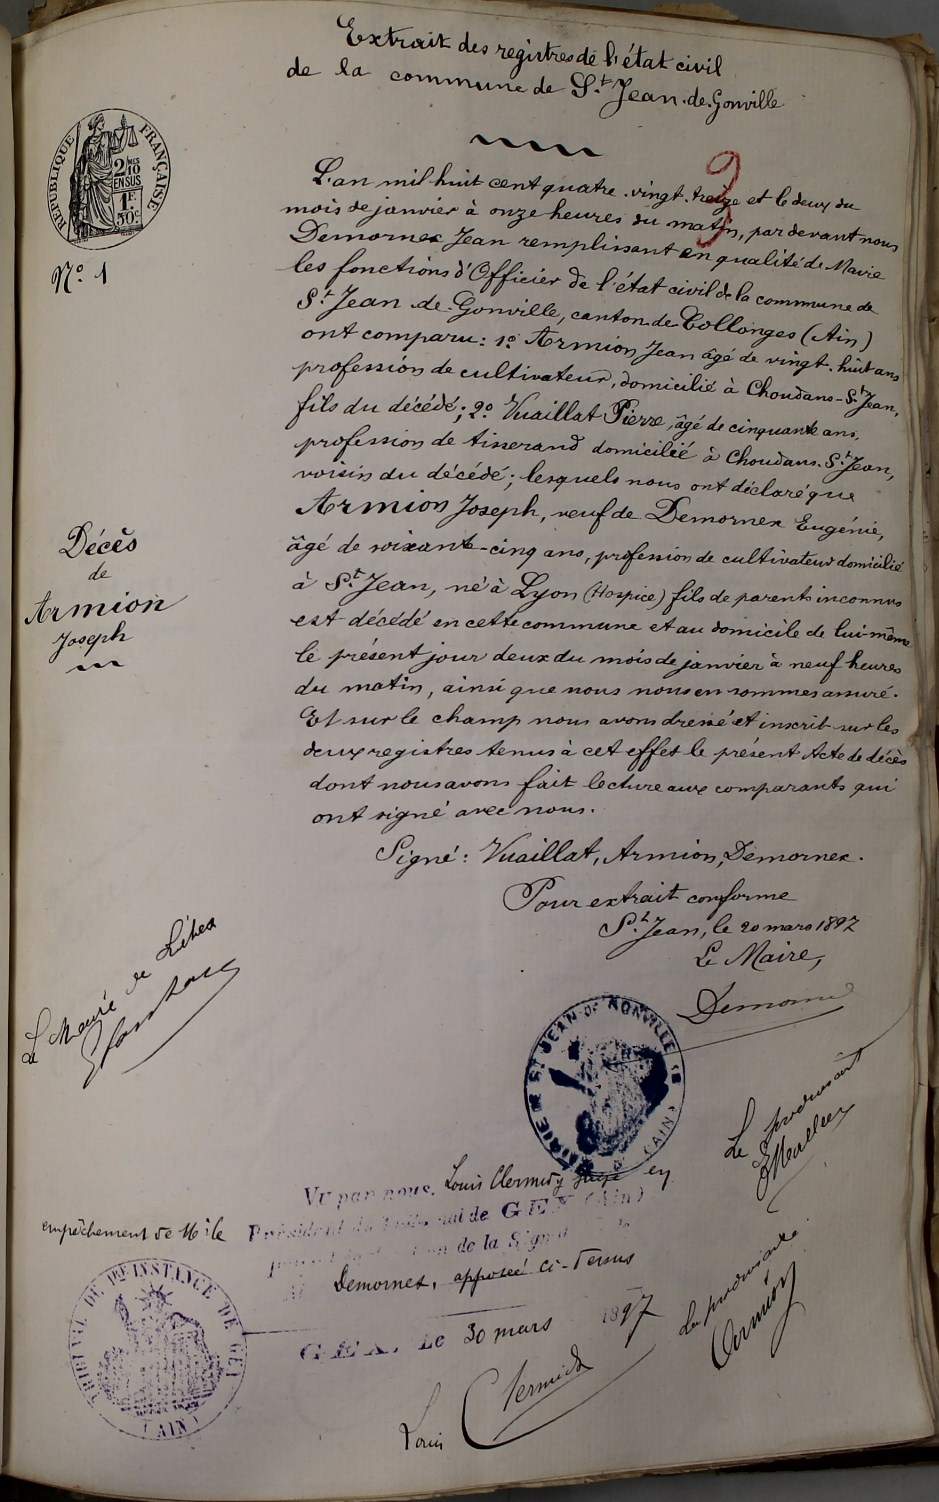 Extrait des registres de l'état civil
de la commune de St Jean-de-Gonville
RÉPUBLIQUE FRANÇAISE
2/10
EN SUS
1F.
50c
No. 1
L'an mil huit cent quatre-vingt-treize et le deux du
mois de janvier à onze heures du matin, par devant nous
Demornex Jean remplissant en qualité de Maire
les fonctions d'Officier de l'état civil de la commune de
St Jean-de-Gonville, canton de Collonges (Ain)
ont comparu: 1o Armion Jean âgé de vingt-huit ans
profession de cultivateur, domicilié à Choudans-St Jean,
fils du décédé; 2o Vuaillat Pierre, âgé de cinquante ans,
profession de tisserand domicilié à Choudans-St Jean,
voisin du décédé; lesquels nous ont déclaré que
Armion Joseph, veuf de Demornex Eugénie,
âgé de soixante-cinq ans, profession de cultivateur domicilié
à St Jean, né à Lyon (Hospice) fils de parents inconnus
est décédé en cette commune et au domicile de lui-même
le présent jour deux du mois de janvier à neuf heures
du matin, ainsi que nous nous en sommes assuré.
Et sur le champ nous avons dressé et inscrit sur les
deux registres tenus à cet effet le présent Acte de décès
dont nous avons fait lecture aux comparants qui
ont signé avec nous.
Décès
de
Armion
Joseph
Signé: Vuaillat, Armion, Demornex.
Pour extrait conforme
St Jean, le 20 mars 1897
Le Maire,
Demornex
MAIRIE DE ST JEAN-DE-GONVILLE (AIN)
Le Maire de
Le
Vu par nous, Louis Clermidy juge en
empêchement de M le Président du Tribunal de GEX (Ain)
de la
Demornex, apposée ci-dessus
GEX, Le 30 mars 1897
Louis Clermidy
TRIBUNAL DE 1RE INSTANCE DE GEX
(AIN)
Armion